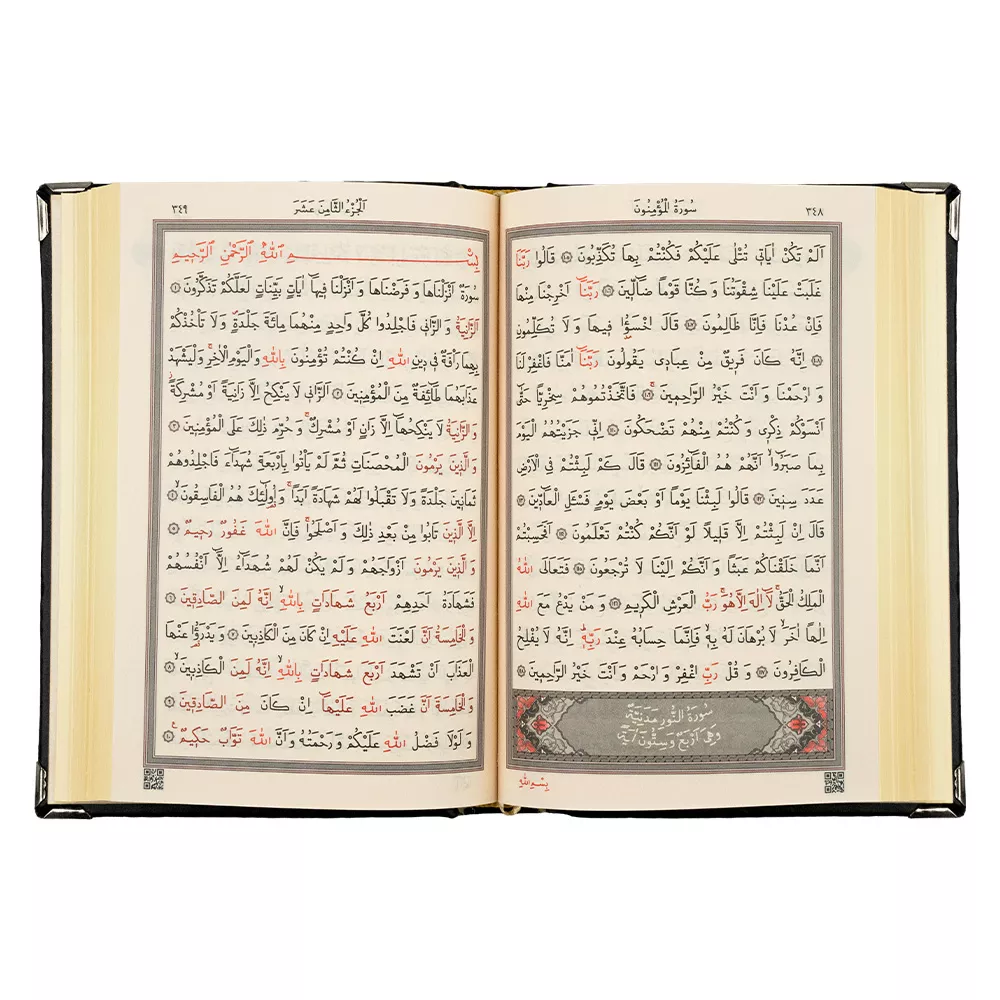 ٣٤٨
سُورَةُ الْمُؤْمِنُونَ
اَلَمْ تَكُنْ اٰيَاتٖى تُتْلٰى عَلَيْكُمْ فَكُنْتُمْ بِهَا تُكَذِّبُونَ ﴿١٠٥﴾ قَالُوا رَبَّنَا
غَلَبَتْ عَلَيْنَا شِقْوَتُنَا وَ كُنَّا قَوْمًا ضَٓالّٖينَ ﴿١٠٦﴾ رَبَّنَٓا اَخْرِجْنَا مِنْهَا
فَاِنْ عُدْنَا فَاِنَّا ظَالِمُونَ ﴿١٠٧﴾ قَالَ اخْسَؤُا فٖيهَا وَ لَا تُكَلِّمُونِ
﴿١٠٨﴾ اِنَّهُ كَانَ فَرٖيقٌ مِنْ عِبَادٖى يَقُولُونَ رَبَّنَٓا اٰمَنَّا فَاغْفِرْ لَنَا
وَ ارْحَمْنَا وَ اَنْتَ خَيْرُ الرَّاحِمٖينَ ﴿١٠٩﴾ فَاتَّخَذْتُمُوهُمْ سِخْرِيًّا حَتّٰٓى
اَنْسَوْكُمْ ذِكْرٖى وَ كُنْتُمْ مِنْهُمْ تَضْحَكُونَ ﴿١١٠﴾ اِنّٖى جَزَيْتُهُمُ الْيَوْمَ
بِمَا صَبَرُٓوا اَنَّهُمْ هُمُ الْفَٓائِزُونَ ﴿١١١﴾ قَالَ كَمْ لَبِثْتُمْ فِى الْاَرْضِ
عَدَدَ سِنٖينَ ﴿١١٢﴾ قَالُوا لَبِثْنَا يَوْمًا اَوْ بَعْضَ يَوْمٍ فَسْـَٔلِ الْعَٓادّٖينَ ﴿١١٣﴾
قَالَ اِنْ لَبِثْتُمْ اِلَّا قَلٖيلًا لَوْ اَنَّكُمْ كُنْتُمْ تَعْلَمُونَ ﴿١١٤﴾ اَفَحَسِبْتُمْ
اَنَّمَا خَلَقْنَاكُمْ عَبَثًا وَ اَنَّكُمْ اِلَيْنَا لَا تُرْجَعُونَ ﴿١١٥﴾ فَتَعَالَى اللّٰهُ
الْمَلِكُ الْحَقُّ لَٓا اِلٰهَ اِلَّا هُوَ رَبُّ الْعَرْشِ الْكَرٖيمِ ﴿١١٦﴾ وَ مَنْ يَدْعُ مَعَ اللّٰهِ
اِلٰهًا اٰخَرَ لَا بُرْهَانَ لَهُ بِهٖ فَاِنَّمَا حِسَابُهُ عِنْدَ رَبِّهٖ اِنَّهُ لَا يُفْلِحُ
الْكَافِرُونَ ﴿١١٧﴾ وَ قُلْ رَبِّ اغْفِرْ وَ ارْحَمْ وَ اَنْتَ خَيْرُ الرَّاحِمٖينَ ﴿١١٨﴾
سُورَةُ النُّورِ مَدَنِيَّةٌ
وَهِىَ اَرْبَعٌ وَسِتُّونَ اٰيَةً
بِسْمِ اللّٰهِ
اَلْجُزْءُ الثَّامِنَ عَشَرَ
٣٤٩
بِسْمِ اللّٰهِ الرَّحْمٰنِ الرَّحٖيمِ
سُورَةٌ اَنْزَلْنَاهَا وَ فَرَضْنَاهَا وَ اَنْزَلْنَا فٖيهَٓا اٰيَاتٍ بَيِّنَاتٍ لَعَلَّكُمْ تَذَكَّرُونَ ﴿١﴾
اَلزَّانِيَةُ وَ الزَّانٖى فَاجْلِدُوا كُلَّ وَاحِدٍ مِنْهُمَا مِائَةَ جَلْدَةٍ وَ لَا تَاْخُذْكُمْ
بِهِمَا رَاْفَةٌ فٖى دٖينِ اللّٰهِ اِنْ كُنْتُمْ تُؤْمِنُونَ بِاللّٰهِ وَ الْيَوْمِ الْاٰخِرِ وَ لْيَشْهَدْ
عَذَابَهُمَا طَٓائِفَةٌ مِنَ الْمُؤْمِنٖينَ ﴿٢﴾ اَلزَّانٖى لَا يَنْكِحُ اِلَّا زَانِيَةً اَوْ مُشْرِكَةً
وَ الزَّانِيَةُ لَا يَنْكِحُهَٓا اِلَّا زَانٍ اَوْ مُشْرِكٌ وَ حُرِّمَ ذٰلِكَ عَلَى الْمُؤْمِنٖينَ ﴿٣﴾
وَ الَّذٖينَ يَرْمُونَ الْمُحْصَنَاتِ ثُمَّ لَمْ يَاْتُوا بِاَرْبَعَةِ شُهَدَٓاءَ فَاجْلِدُوهُمْ
ثَمَانٖينَ جَلْدَةً وَ لَا تَقْبَلُوا لَهُمْ شَهَادَةً اَبَدًا وَ اُولٰٓئِكَ هُمُ الْفَاسِقُونَ ﴿٤﴾
اِلَّا الَّذٖينَ تَابُوا مِنْ بَعْدِ ذٰلِكَ وَ اَصْلَحُوا فَاِنَّ اللّٰهَ غَفُورٌ رَحٖيمٌ ﴿٥﴾
وَ الَّذٖينَ يَرْمُونَ اَزْوَاجَهُمْ وَ لَمْ يَكُنْ لَهُمْ شُهَدَٓاءُ اِلَّٓا اَنْفُسُهُمْ
فَشَهَادَةُ اَحَدِهِمْ اَرْبَعُ شَهَادَاتٍ بِاللّٰهِ اِنَّهُ لَمِنَ الصَّادِقٖينَ ﴿٦﴾
وَ الْخَامِسَةُ اَنَّ لَعْنَتَ اللّٰهِ عَلَيْهِ اِنْ كَانَ مِنَ الْكَاذِبٖينَ ﴿٧﴾ وَ يَدْرَؤُا عَنْهَا
الْعَذَابَ اَنْ تَشْهَدَ اَرْبَعَ شَهَادَاتٍ بِاللّٰهِ اِنَّهُ لَمِنَ الْكَاذِبٖينَ ﴿٨﴾
وَ الْخَامِسَةَ اَنَّ غَضَبَ اللّٰهِ عَلَيْهَٓا اِنْ كَانَ مِنَ الصَّادِقٖينَ ﴿٩﴾
وَ لَوْلَا فَضْلُ اللّٰهِ عَلَيْكُمْ وَ رَحْمَتُهُ وَ اَنَّ اللّٰهَ تَوَّابٌ حَكٖيمٌ ﴿١٠﴾